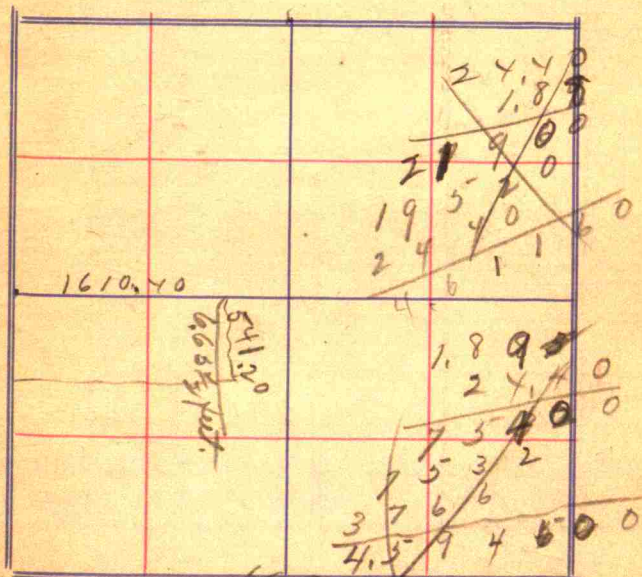 2 4.4 0
1.8
2 1 9 0 0
1 9 5 2 0
2 4 4 0
4 6 1 1 6 0
1610.40
541.20
1.8 9
2 4.4 0
7 5 4 0 0
7 5 3 2
3 7 6 6
4.5 9 4 6 0 0